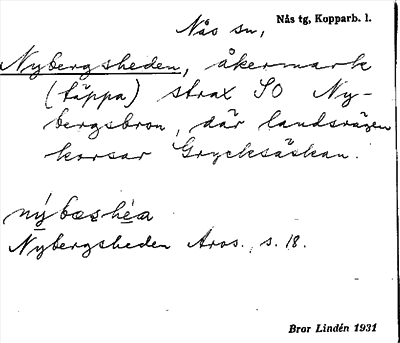 Nås sn, Nås tg, Kopparb. l.
Nybergsheden, åkermark
(täppa) strax SO Ny-
bergsbron, där landsvägen
korsar Grycksåskan.
nýbæshèa
Nybergsheden Aros., s. 18.
Bror Lindén 1931